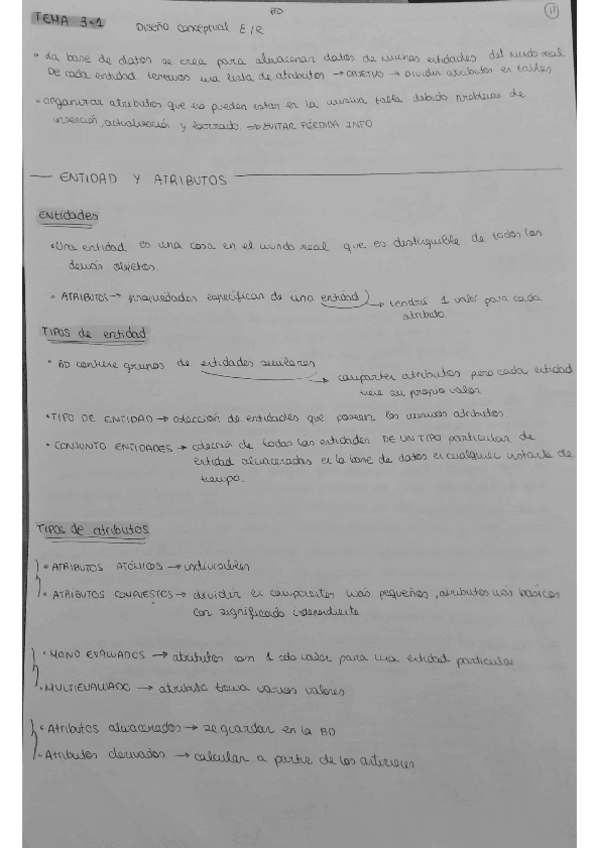 BD
11
TEMA 3.1 Diseño Conceptual E/R
• La base de datos se crea para almacenar datos de muchas entidades del mundo real
De cada entidad tenemos una lista de atributos → OBJETIVO → Dividir atributos en tablas
• organizar atributos que no pueden estar en la misma tabla debido problemas de
inserción, actualización y borrado. ⇒ EVITAR PÉRDIDA INFO
ENTIDAD Y ATRIBUTOS
Entidades
• Una entidad es una cosa en el mundo real que es distinguible de todos los
demás objetos.
• ATRIBUTOS → propiedades específicas de una entidad → tendrá 1 valor para cada
atributo.
TIPOS de entidad
• BD contiene grupos de entidades similares
→ comparten atributos pero cada entidad
tiene su propio valor
• TIPO DE ENTIDAD → colección de entidades que poseen los mismos atributos.
• CONJUNTO ENTIDADES → colección de todas las entidades DE UN TIPO particular de
entidad almacenadas en la base de datos en cualquier instante de
tiempo.
TIPOS de atributos
• ATRIBUTOS ATÓMICOS → indivisibles
• ATRIBUTOS COMPUESTOS → dividir en componentes más pequeños, atributos más básicos
con significado independiente
• MONO EVALUADOS → atributos con 1 solo valor para una entidad particular
• MULTIEVALUADO → atributo toma varios valores
• Atributos almacenados → se guardan en la BD
• Atributos derivados → calcular a partir de los anteriores